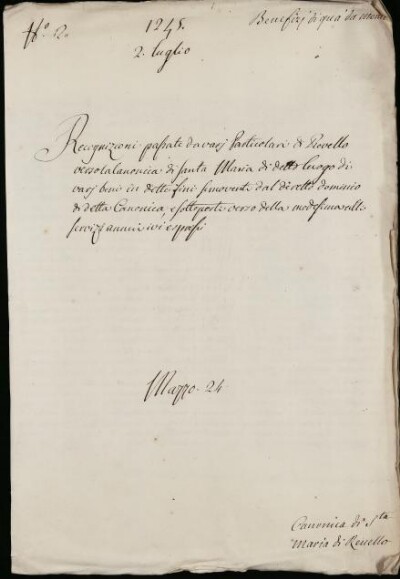 N.º 2.
1245.
2. luglio
Benefizj di qua da monti
Recognizioni passate da varj Particolari di Revello
verso la Canonica di santa Maria di detto Luogo di
varj beni in dette fini simoventi dal diretto dominio
di detta Canonica, e sottoposti verso della medesima alli
servizj annui ivi espressi
Mazzo. 24
Canonica di S.ta
Maria di Revello